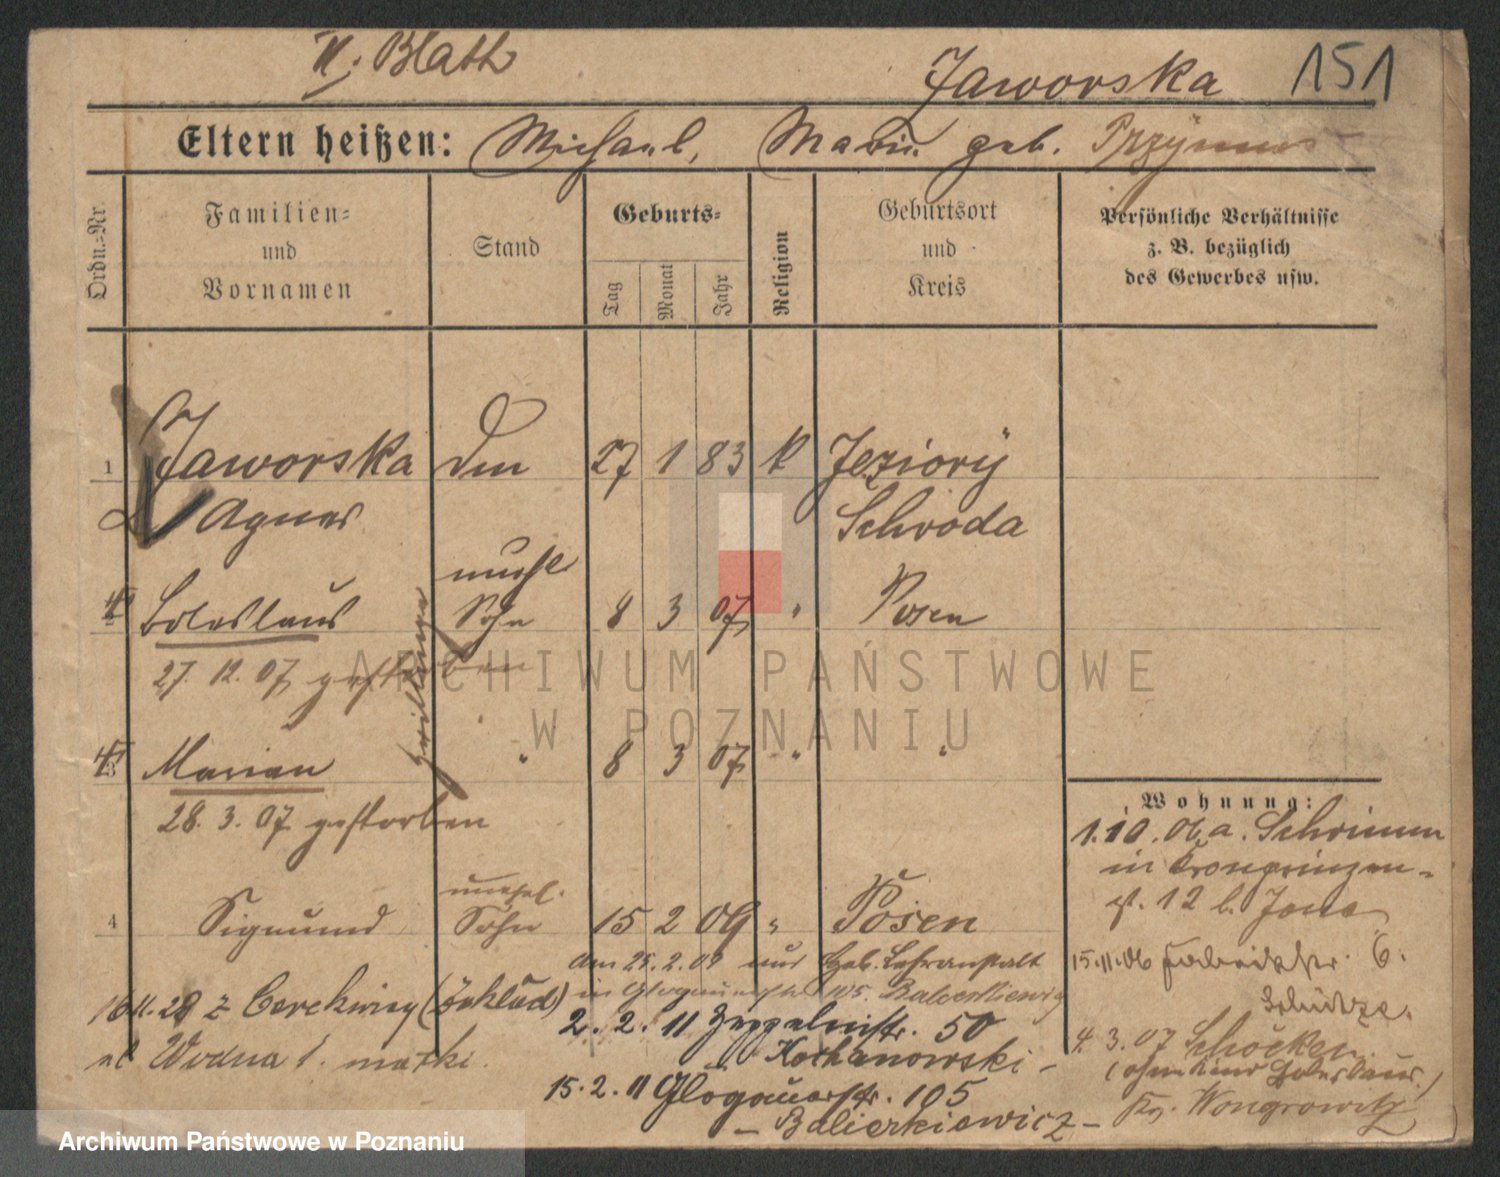 II. Blatt
Jaworska 151
Eltern heißen: Michael, Maria geb. Przymus
Ordn.-Nr.
Familien-
und
Vornamen
Stand
Geburts-
Tag
Monat
Jahr
Religion
Geburtsort
und
Kreis
Persönliche Verhältnisse
z. B. bezüglich
des Gewerbes usw.
1 Jaworska 27 1 83 k Jeziory
Agnes Schroda
unehl
2 Boleslaus Sohn 8 3 07 " Posen
27. 12. 07 gestorben
Zwillinge
3 Marian " 8 3 07 " "
28. 3. 07 gestorben
unehel.
4 Sigmund Sohn 15 2 09 " Posen
Wohnung:
1.10.06 a. Schrimm
in Kronprinzen-
st. 12 b.
15.11.06 Fabrikstr. 6.
Schütze.
4. 3. 07 Schocken
(ohne Kind Boleslaus)
Kr. Wongrowitz
am 25. 2. 09 aus Heb. Lehranstalt
in Glogauerstr 105. Balcerkiewicz
16/11.28 z Cerekwicy (Żeklud)
ul Wodna 1. matki.
2. 2. 11 Zeppelinstr. 50
Kochanowski -
15. 2. 11 Glogauerstr. 105
- Balcerkiewicz -
ARCHIWUM PAŃSTWOWE
W POZNANIU
Archiwum Państwowe w Poznaniu